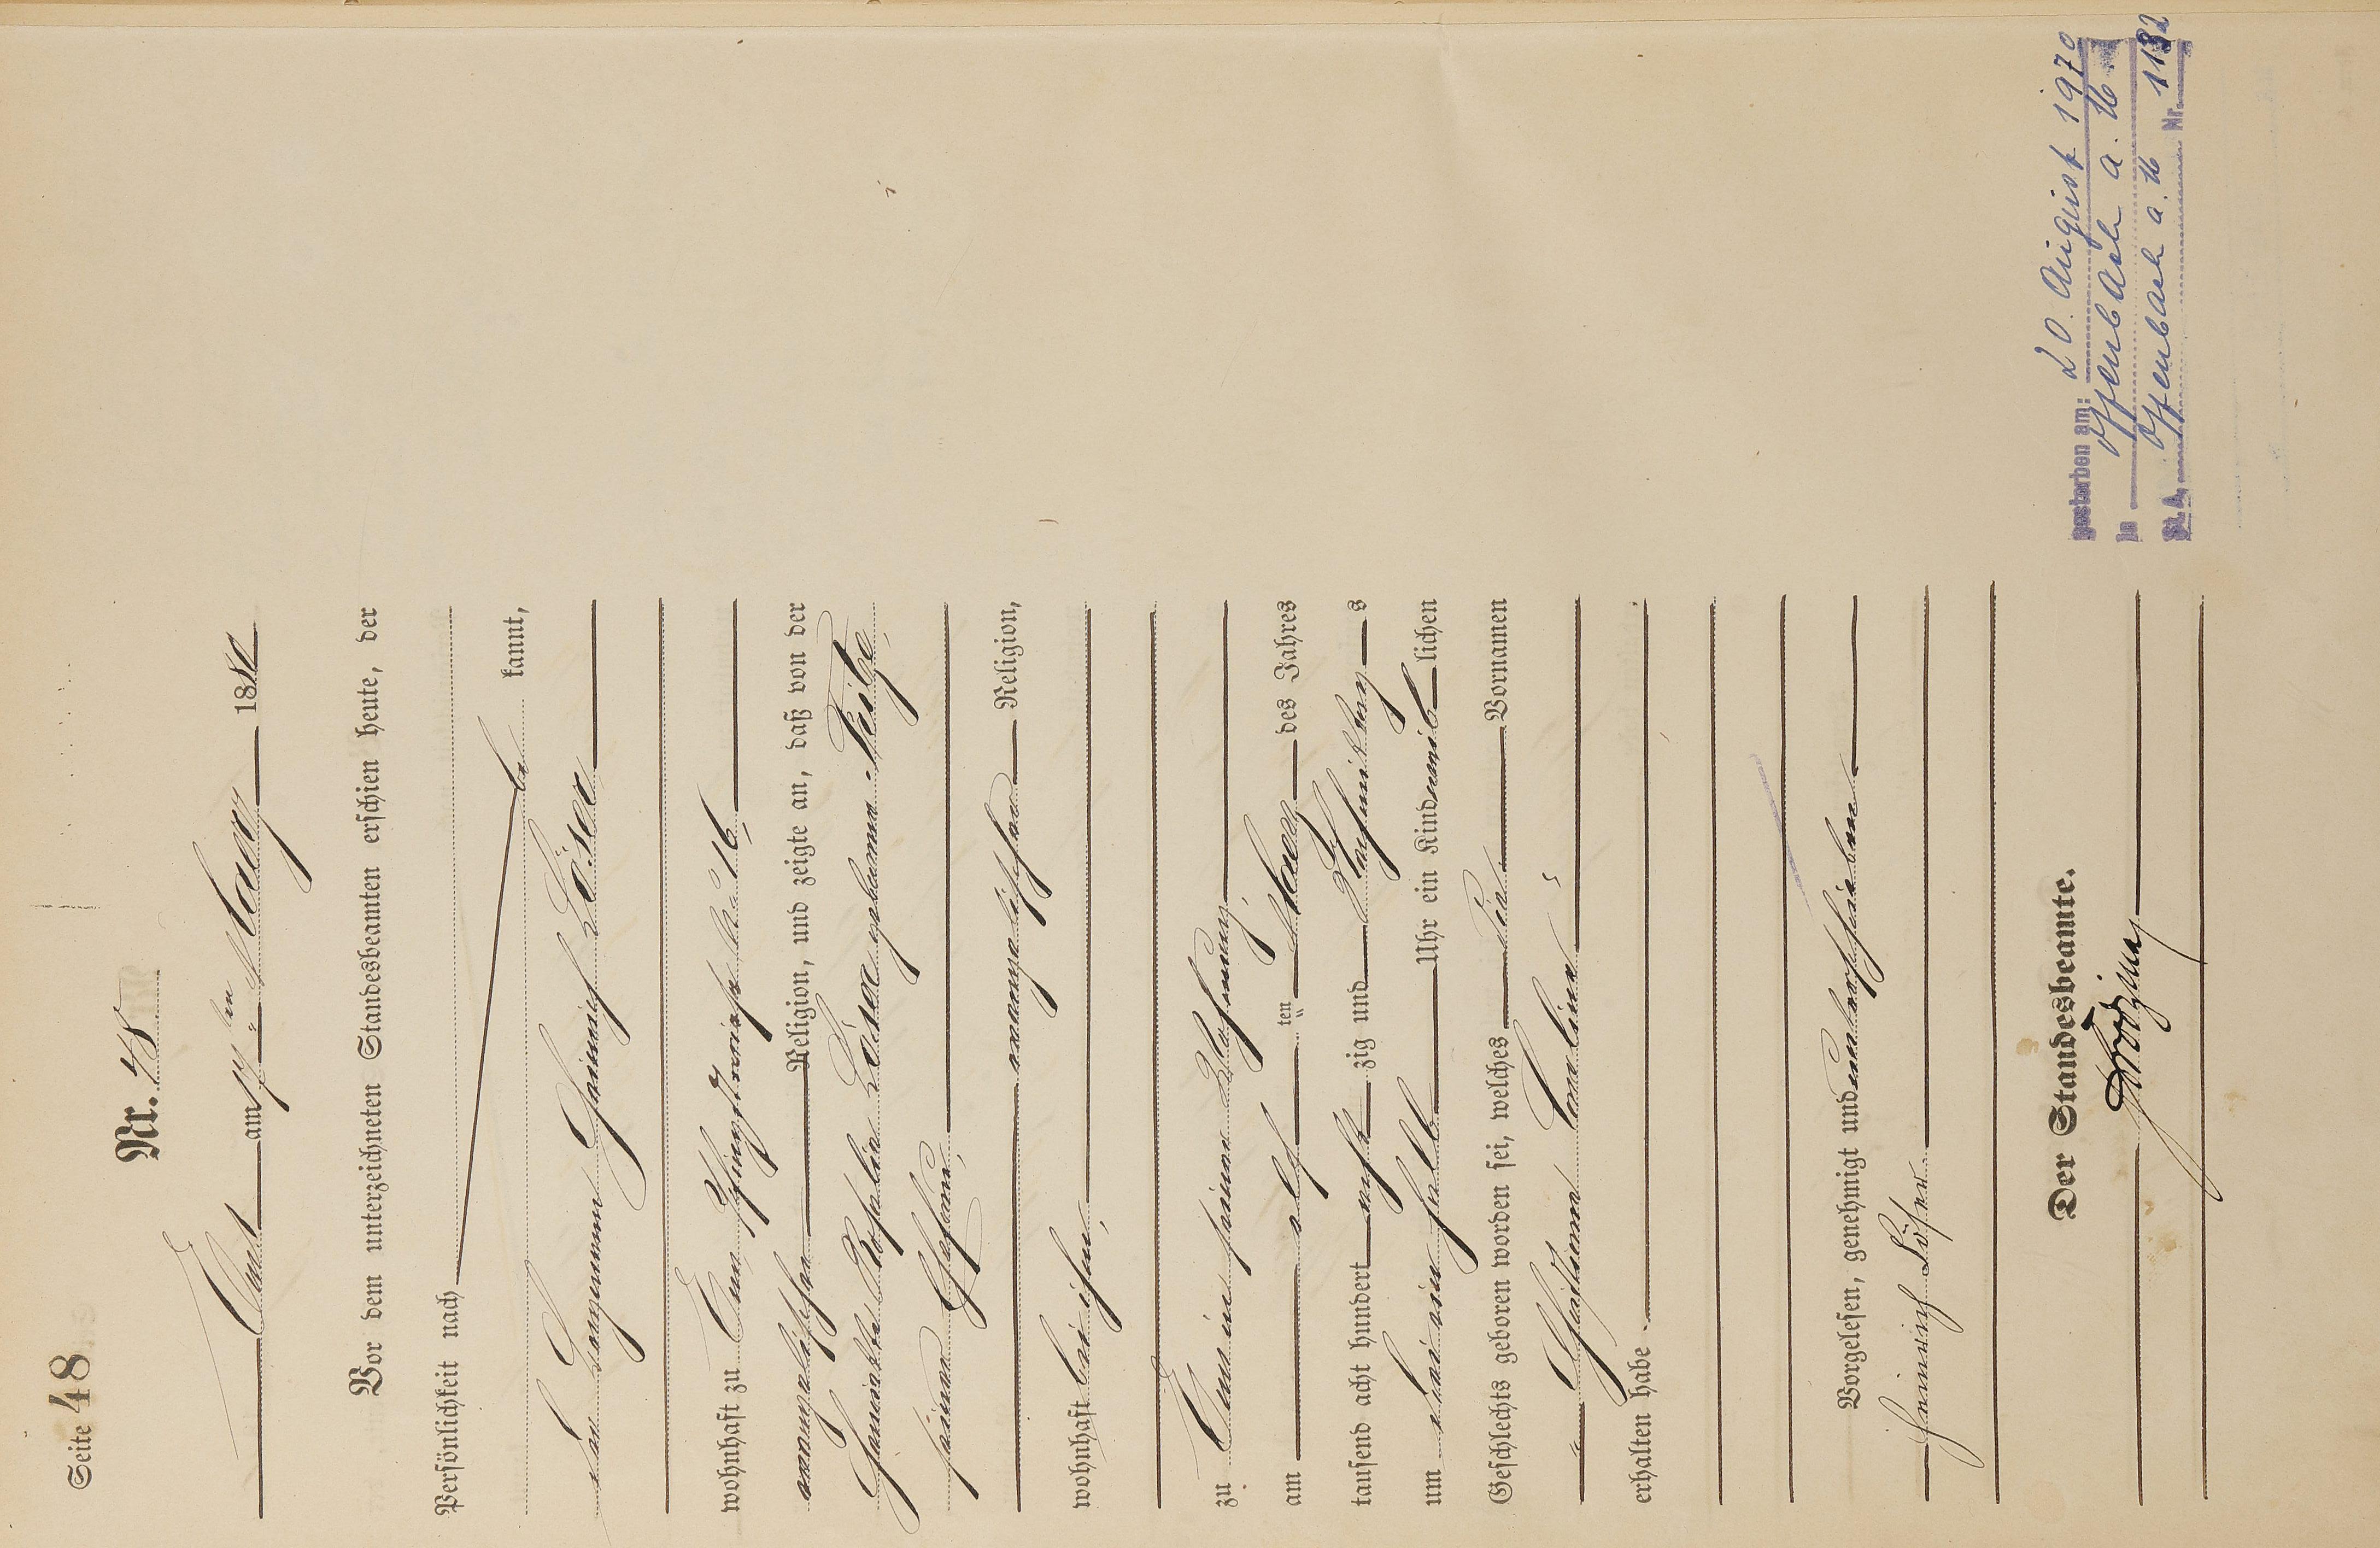 Seite 48
Nr. 48
Ems am 17ten März 1880
Vor dem unterzeichneten Standesbeamten erschien heute, der
Persönlichkeit nach
be kannt,
der Bergmann Heinrich Löser
wohnhaft zu Ems, 16,
evangelischer Religion, und zeigte an, daß von der
Henriette Rosalie Löser geborenen
seiner Ehefrau,
evangelischer Religion,
wohnhaft bei ihm,
zu Ems in seiner Wohnung
am elf ten März des Jahres
tausend acht hundert acht zig und Nachmittags
um ein halb Uhr ein Kind weib lichen
Geschlechts geboren worden sei, welches die Vornamen
Caroline
erhalten habe.
Vorgelesen, genehmigt und unterschrieben
Heinrich Löser
Der Standesbeamte.
gestorben am: 20. August 1970
in Offenbach a. M.
St. A. Offenbach a. M Nr. 1132